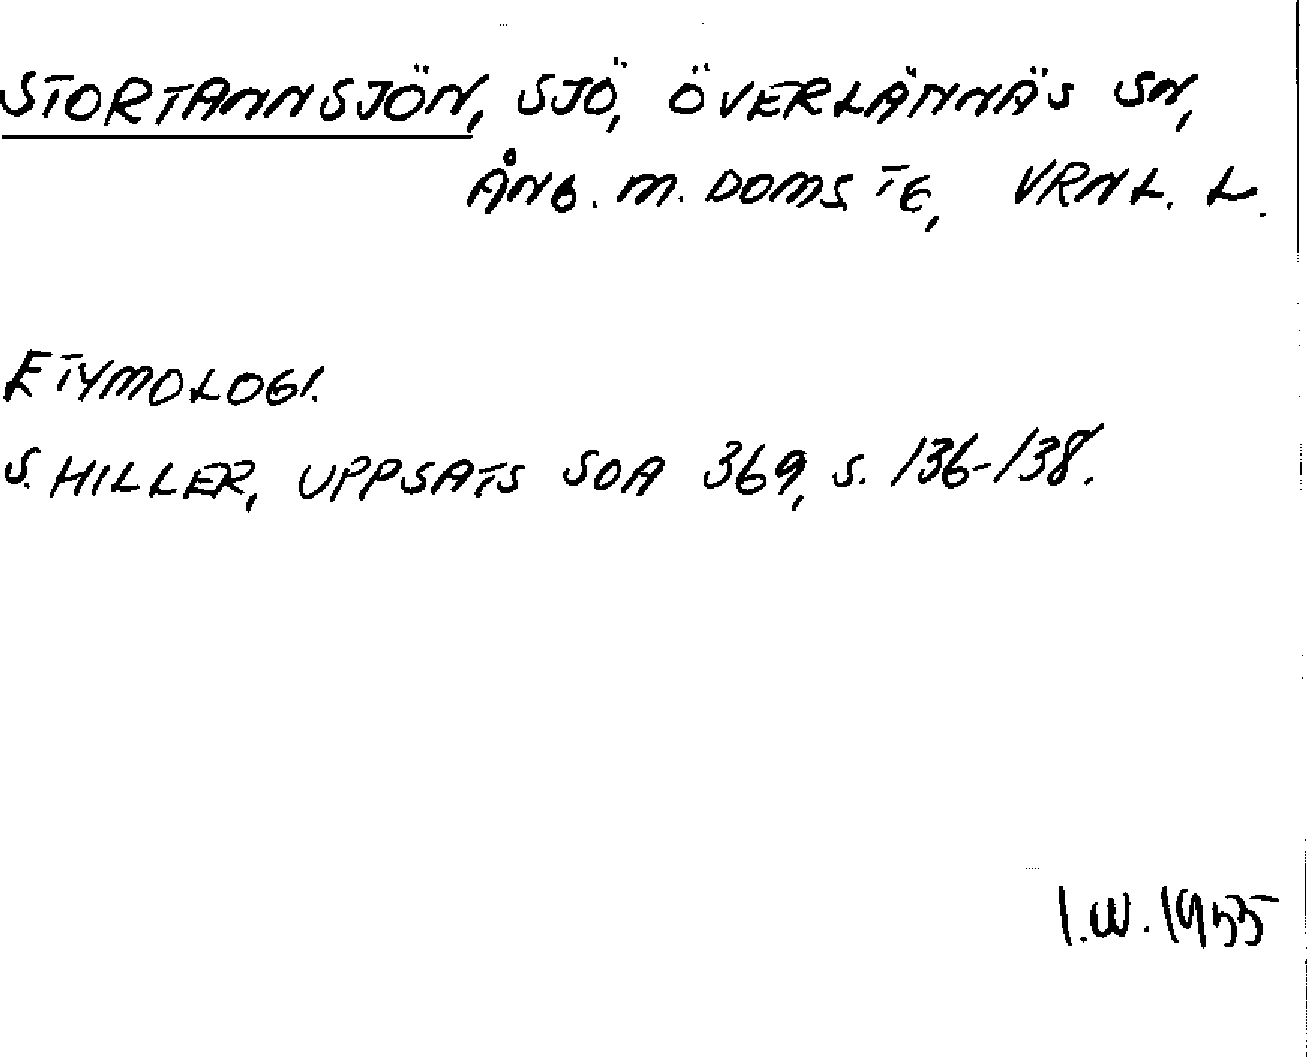 STORTANNSJÖN, SJÖ, ÖVERLÄNNÄS SN,
ÅNG. M. DOMS TG, VRNL. L.
ETYMOLOGI.
S. HILLER, UPPSATS SOA 369, S. 136-138.
I.W. 1955